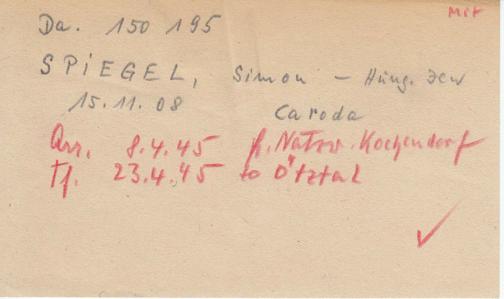 Mit
Da. 150 195
SPiEGEL, Simon – Hung. Jew
15.11.08 Caroda
Arr. 8.4.45 f. Natzw. Kochendorf
Tf. 23.4.45 to Ötztal